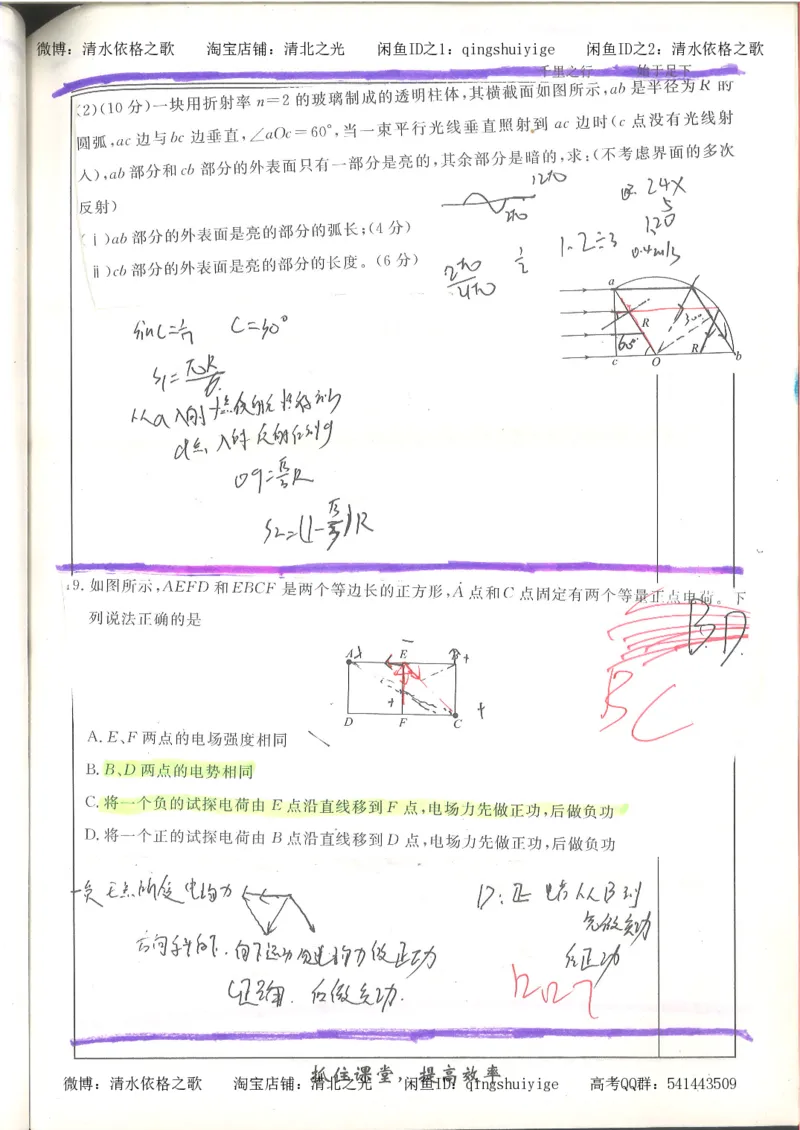 微博：清水依格之歌 淘宝店铺：清北之光 闲鱼ID之1：qingshuiyige 闲鱼ID之2：清水依格之歌
千里之行 始于足下
(2)(10分)一块用折射率 n=2 的玻璃制成的透明柱体,其横截面如图所示,ab 是半径为 R 的
圆弧,ac 边与 bc 边垂直,∠aOc=60°,当一束平行光线垂直照射到 ac 边时(c 点没有光线射
入),ab 部分和 cb 部分的外表面只有一部分是亮的,其余部分是暗的,求:(不考虑界面的多次
反射)
(ⅰ)ab 部分的外表面是亮的部分的弧长;(4分)
ⅱ)cb 部分的外表面是亮的部分的长度。(6分)
24X
5
120
1.2÷3
0.4m/s
a
R
60°
30°
R
c O b
C=30°
从a入射
d点入射
S₂=(1-√3/3)R
19. 如图所示,AEFD 和 EBCF 是两个等边长的正方形,A 点和 C 点固定有两个等量正点电荷。下
列说法正确的是
BD
BC
A E B +
+
+
D F C
A. E、F 两点的电场强度相同
B. B、D 两点的电势相同
C. 将一个负的试探电荷由 E 点沿直线移到 F 点,电场力先做正功,后做负功
D. 将一个正的试探电荷由 B 点沿直线移到 D 点,电场力先做正功,后做负功
D:正电荷从B到
先做负功
后正功
方向斜向下.
C正确. 后做负功.
抓住课堂，提高效率
微博：清水依格之歌 淘宝店铺：清北之光 闲鱼ID：qingshuiyige 高考QQ群：541443509